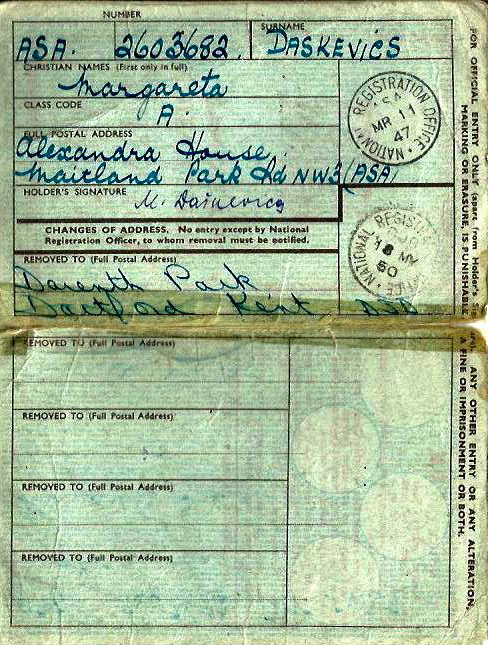 NUMBER
SURNAME
ASA. 2603682. DASKEVICS
CHRISTIAN NAMES (First only in full)
Margareta
CLASS CODE
A.
FULL POSTAL ADDRESS
Alexandra House,
Maitland Park Rd NW3 (ASA)
HOLDER'S SIGNATURE
M. Daskevics
CHANGES OF ADDRESS. No entry except by National
Registration Officer, to whom removal must be notified.
REMOVED TO (Full Postal Address)
Darenth Park
Dartford Kent
REMOVED TO (Full Postal Address)
REMOVED TO (Full Postal Address)
REMOVED TO (Full Postal Address)
REMOVED TO (Full Postal Address)
NATIONAL REGISTRATION OFFICE
ASA
MR 11
47
NATIONAL REGISTRATION OFFICE
18 MY
50
FOR OFFICIAL ENTRY ONLY (apart from Holder's
MARKING OR ERASURE, IS PUNISHABLE
ANY OTHER ENTRY OR ANY ALTERATION,
A FINE OR IMPRISONMENT OR BOTH.